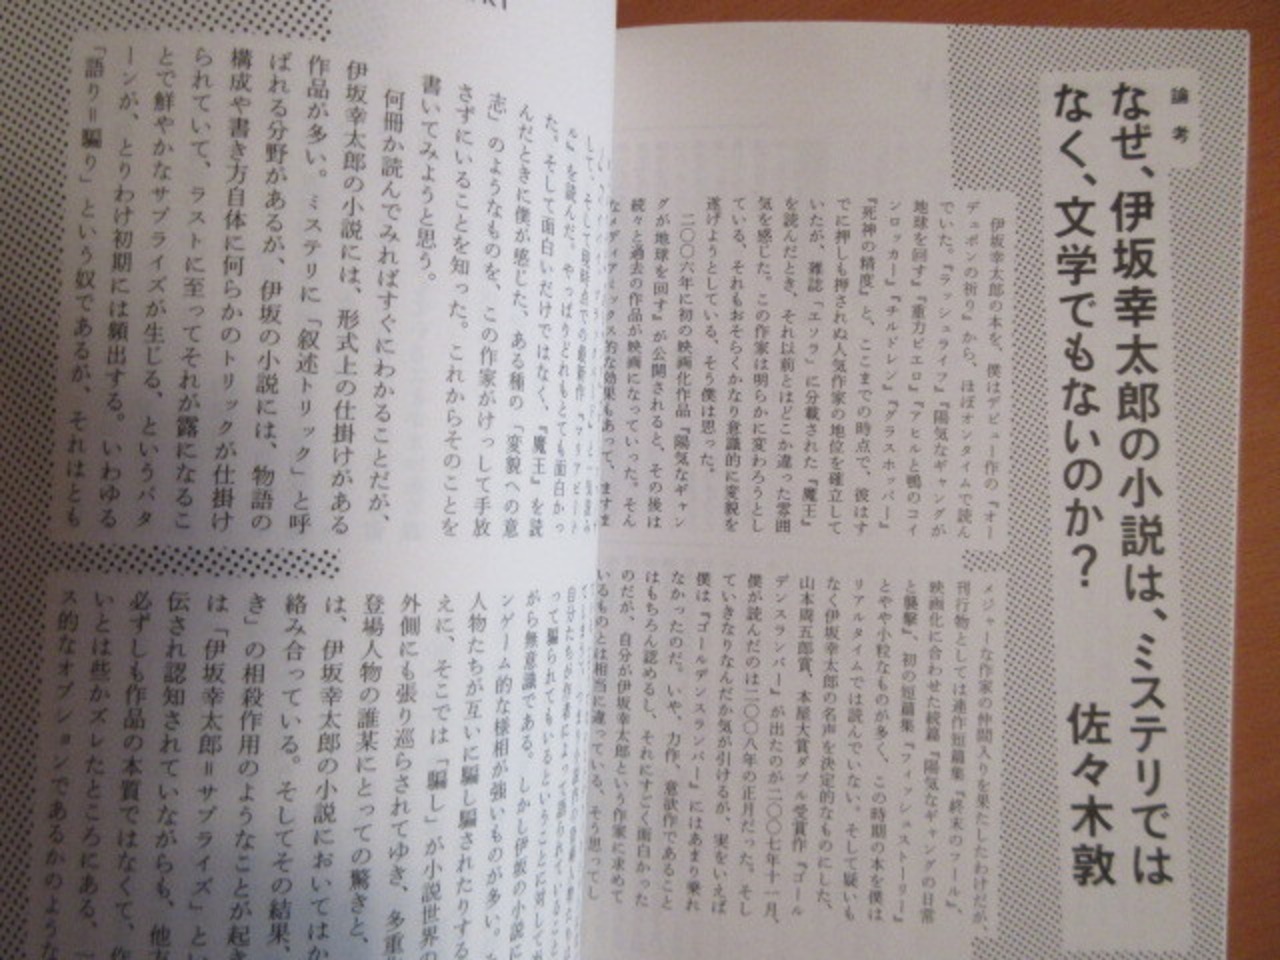 論考
なぜ、伊坂幸太郎の小説は、ミステリでは
なく、文学でもないのか？
佐々木敦
伊坂幸太郎の本を、僕はデビュー作の『オー
デュボンの祈り』から、ほぼオンタイムで読ん
でいた。『ラッシュライフ』『陽気なギャングが
地球を回す』『重力ピエロ』『アヒルと鴨のコイ
ンロッカー』『チルドレン』『グラスホッパー』
『死神の精度』と、ここまでの時点で、彼はす
でに押しも押されぬ人気作家の地位を確立して
いたが、雑誌「エソラ」に分載された『魔王』
を読んだとき、それ以前とはどこか違った雰囲
気を感じた。この作家は明らかに変わろうとし
ている、それもおそらくかなり意識的に変貌を
遂げようとしている、そう僕は思った。
二〇〇六年に初の映画化作品『陽気なギャン
グが地球を回す』が公開されると、その後は
続々と過去の作品が映画になっていった。そん
なメディアミックス的な効果もあって、ますま
メジャーな作家の仲間入りを果たしたわけだが、
刊行物としては連作短篇集『終末のフール』、
映画化に合わせた続篇『陽気なギャングの日常
と襲撃』、初の短篇集『フィッシュストーリー』
とやや小粒なものが多く、この時期の本を僕は
リアルタイムでは読んでいない。そして疑いも
なく伊坂幸太郎の名声を決定的なものにした、
山本周五郎賞、本屋大賞ダブル受賞作『ゴール
デンスランバー』が出たのが二〇〇七年十一月、
僕が読んだのは二〇〇八年の正月だった。そし
ていきなりなんだか気が引けるが、実をいえば
僕は『ゴールデンスランバー』にはあまり乗れ
なかったのだ。いや、力作、意欲作であること
はもちろん認めるし、それにすごく面白かった
のだが、自分が伊坂幸太郎という作家に求めて
いるものとは相当に違っている、そう思ってし
ル』を読んだ。やっぱりどれもとても面白かっ
た。そして面白いだけではなく、『魔王』を読
んだときに僕が感じた、ある種の「変貌への意
志」のようなものを、この作家がけっして手放
さずにいることを知った。これからそのことを
書いてみようと思う。
何冊か読んでみればすぐにわかることだが、
伊坂幸太郎の小説には、形式上の仕掛けがある
作品が多い。ミステリに「叙述トリック」と呼
ばれる分野があるが、伊坂の小説には、物語の
構成や書き方自体に何らかのトリックが仕掛け
られていて、ラストに至ってそれが露になるこ
とで鮮やかなサプライズが生じる、というパタ
ーンが、とりわけ初期には頻出する。いわゆる
「語り＝騙り」という奴であるが、それはとも
って騙られてもいるということに対してが
がら無意識である。しかし伊坂の小説に
ンゲーム的な様相が強いものが多い。
人物たちが互いに騙し騙されたりする
えに、そこでは「騙し」が小説世界の
外側にも張り巡らされてゆき、多重
登場人物の誰某にとっての驚きと、
は、伊坂幸太郎の小説においてはか
絡み合っている。そしてその結果、
き」の相殺作用のようなことが起き
は「伊坂幸太郎＝サプライズ」とい
伝され認知されていながらも、他方
必ずしも作品の本質ではなくて、作
いとは些かズレたところにある、一
ス的なオプションであるかのような